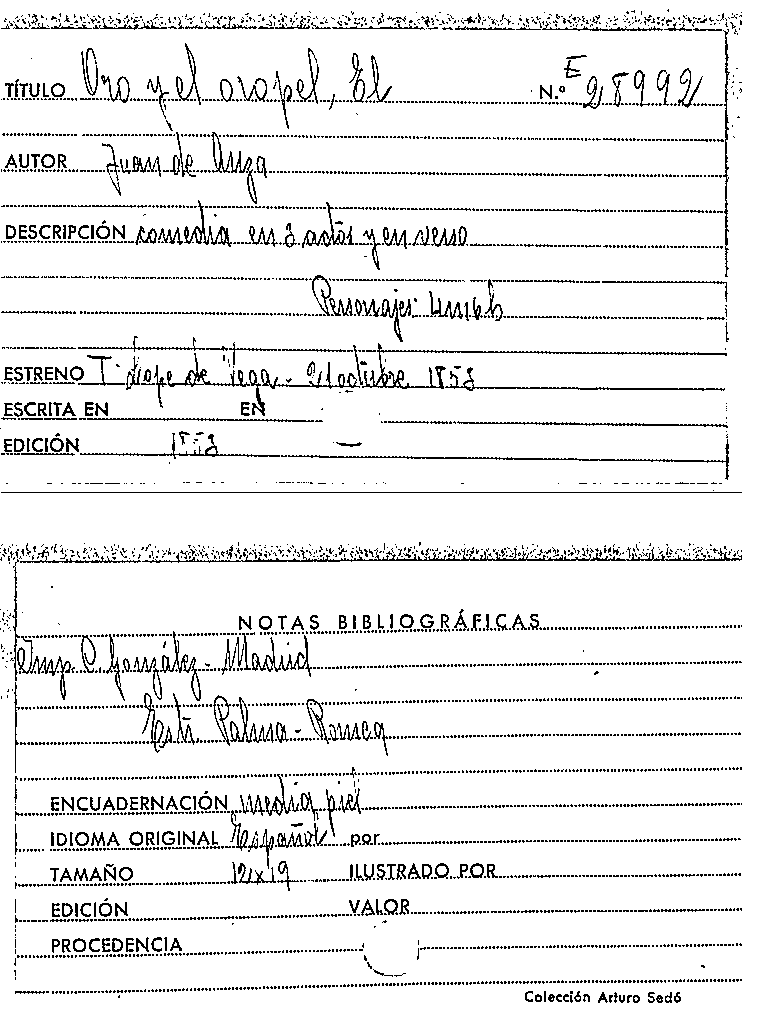 TÍTULO Oro y el oropel, El N.º E 28992
AUTOR Juan de Ariza
DESCRIPCIÓN comedia en 3 actos y en verso
Personajes: 4m 6h
ESTRENO T. Lope de Vega - octubre 1853
ESCRITA EN EN
EDICIÓN 1853
NOTAS BIBLIOGRÁFICAS
Imp C. González - Madrid
Palma - Romea
ENCUADERNACIÓN media piel
IDIOMA ORIGINAL Español por
TAMAÑO 12x19 ILUSTRADO POR
EDICIÓN VALOR
PROCEDENCIA
Colección Arturo Sedó